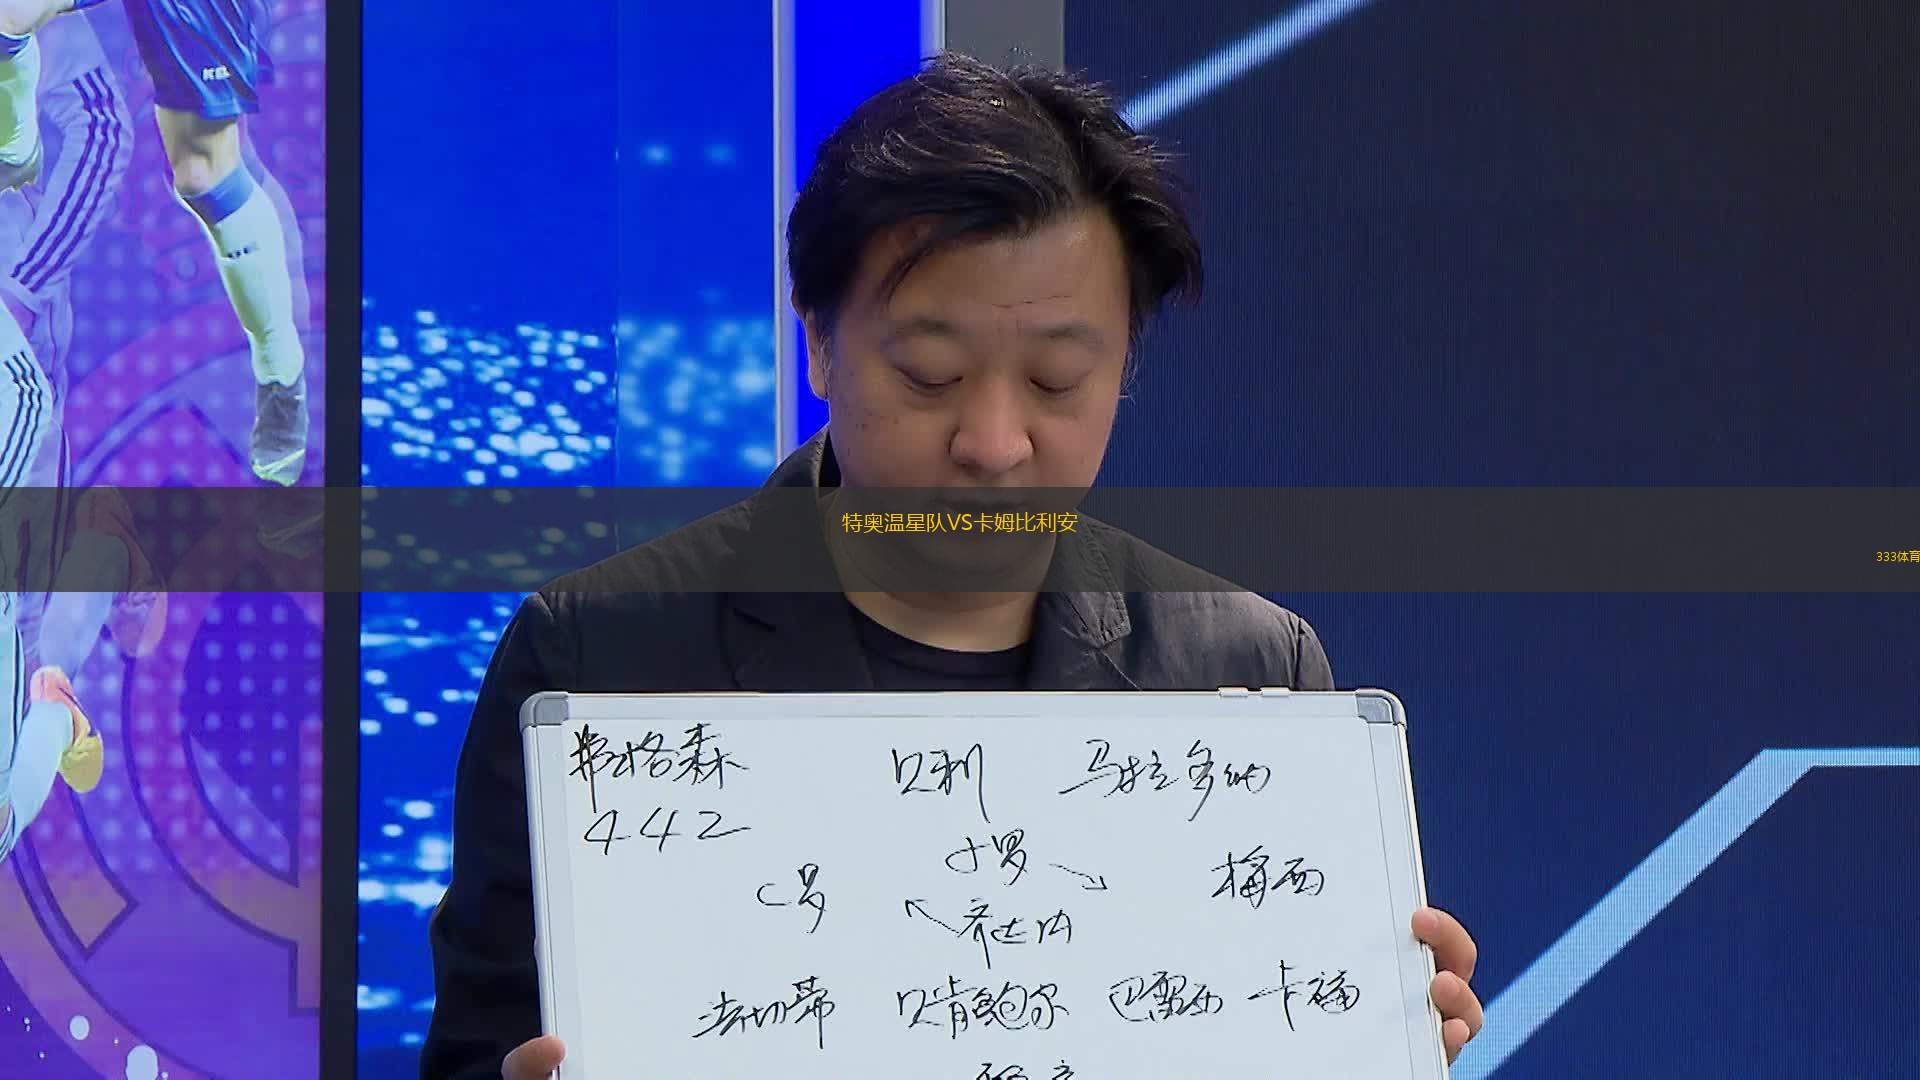 KEL
特奥温星队VS卡姆比利安
333体育
弗格森 贝利 马拉多纳
442
小罗
C罗 梅西
齐达内
法切蒂 贝肯鲍尔 巴雷西 卡福